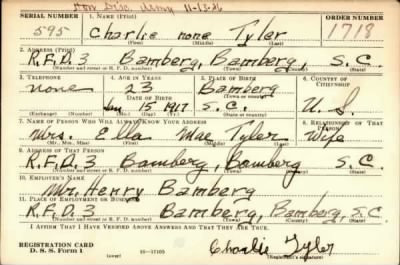 Hon Disc. Army 11-13-26
SERIAL NUMBER 1. NAME (Print) ORDER NUMBER
595 Charlie none Tyler 1718
(First) (Middle) (Last)
2. ADDRESS (Print)
R.F.D. 3 Bamberg, Bamberg, S.C.
(Number and street or R. F. D. number) (Town) (County) (State)
3. TELEPHONE 4. AGE IN YEARS 5. PLACE OF BIRTH 6. COUNTRY OF CITIZENSHIP
none 23 Bamberg
DATE OF BIRTH (Town or county)
Jan 15 1917 S.C. U.S.
(Exchange) (Number) (Mo.) (Day) (Yr.) (State or country)
7. NAME OF PERSON WHO WILL ALWAYS KNOW YOUR ADDRESS 8. RELATIONSHIP OF THAT PERSON
Mrs. Ella Mae Tyler Wife
(Mr., Mrs., Miss) (First) (Middle) (Last)
9. ADDRESS OF THAT PERSON
R.F.D. 3 Bamberg, Bamberg S.C.
(Number and street or R. F. D. number) (Town) (County) (State)
10. EMPLOYER'S NAME
Mr. Henry Bamberg
11. PLACE OF EMPLOYMENT OR BUSINESS
R.F.D. 3 Bamberg, Bamberg, S.C.
(Number and street or R. F. D. number) (Town) (County) (State)
I AFFIRM THAT I HAVE VERIFIED ABOVE ANSWERS AND THAT THEY ARE TRUE.
REGISTRATION CARD
D. S. S. Form 1 (over) 16-17105 Charlie Tyler
(Registrant's signature)